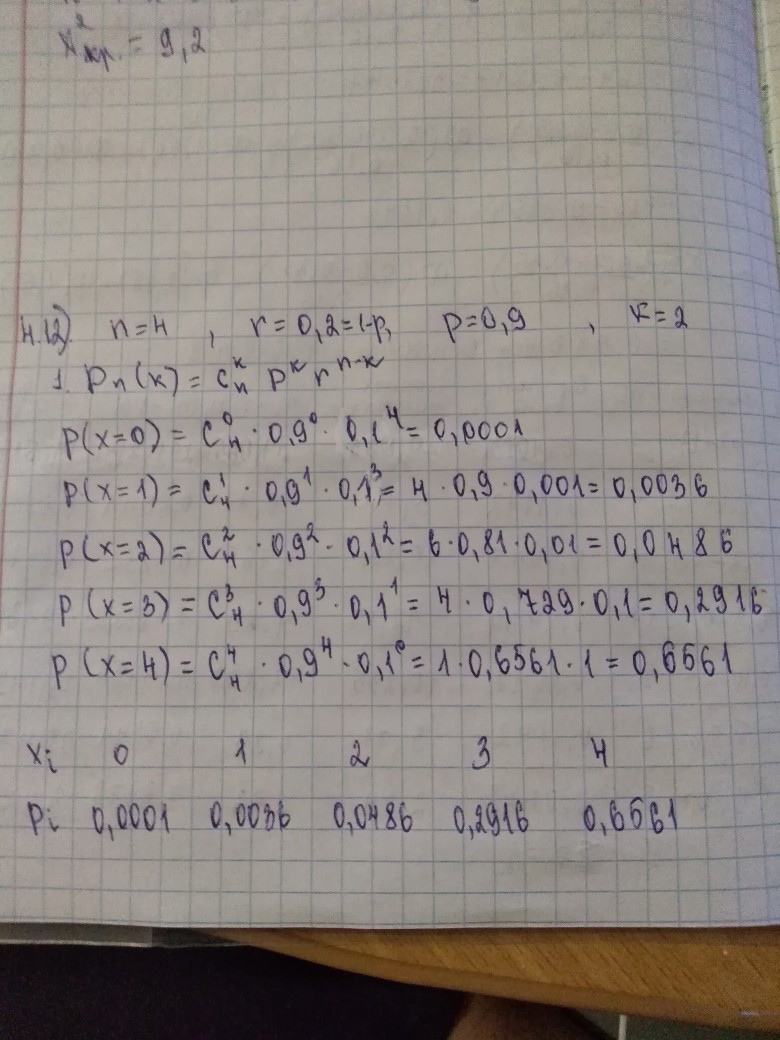 x²кр. = 9,2
4.12). n=4 , r=0,2=1-p, p=0,9 , k=2
1. Pn(k) = Cₙᵏ pᵏ rⁿ⁻ᵏ
p(x=0) = C₄⁰ · 0,9⁰ · 0,1⁴ = 0,0001
p(x=1) = C₄¹ · 0,9¹ · 0,1³ = 4 · 0,9 · 0,001 = 0,0036
p(x=2) = C₄² · 0,9² · 0,1² = 6 · 0,81 · 0,01 = 0,0486
p(x=3) = C₄³ · 0,9³ · 0,1¹ = 4 · 0,729 · 0,1 = 0,2916
p(x=4) = C₄⁴ · 0,9⁴ · 0,1⁰ = 1 · 0,6561 · 1 = 0,6561
xi 0 1 2 3 4
pi 0,0001 0,0036 0,0486 0,2916 0,6561